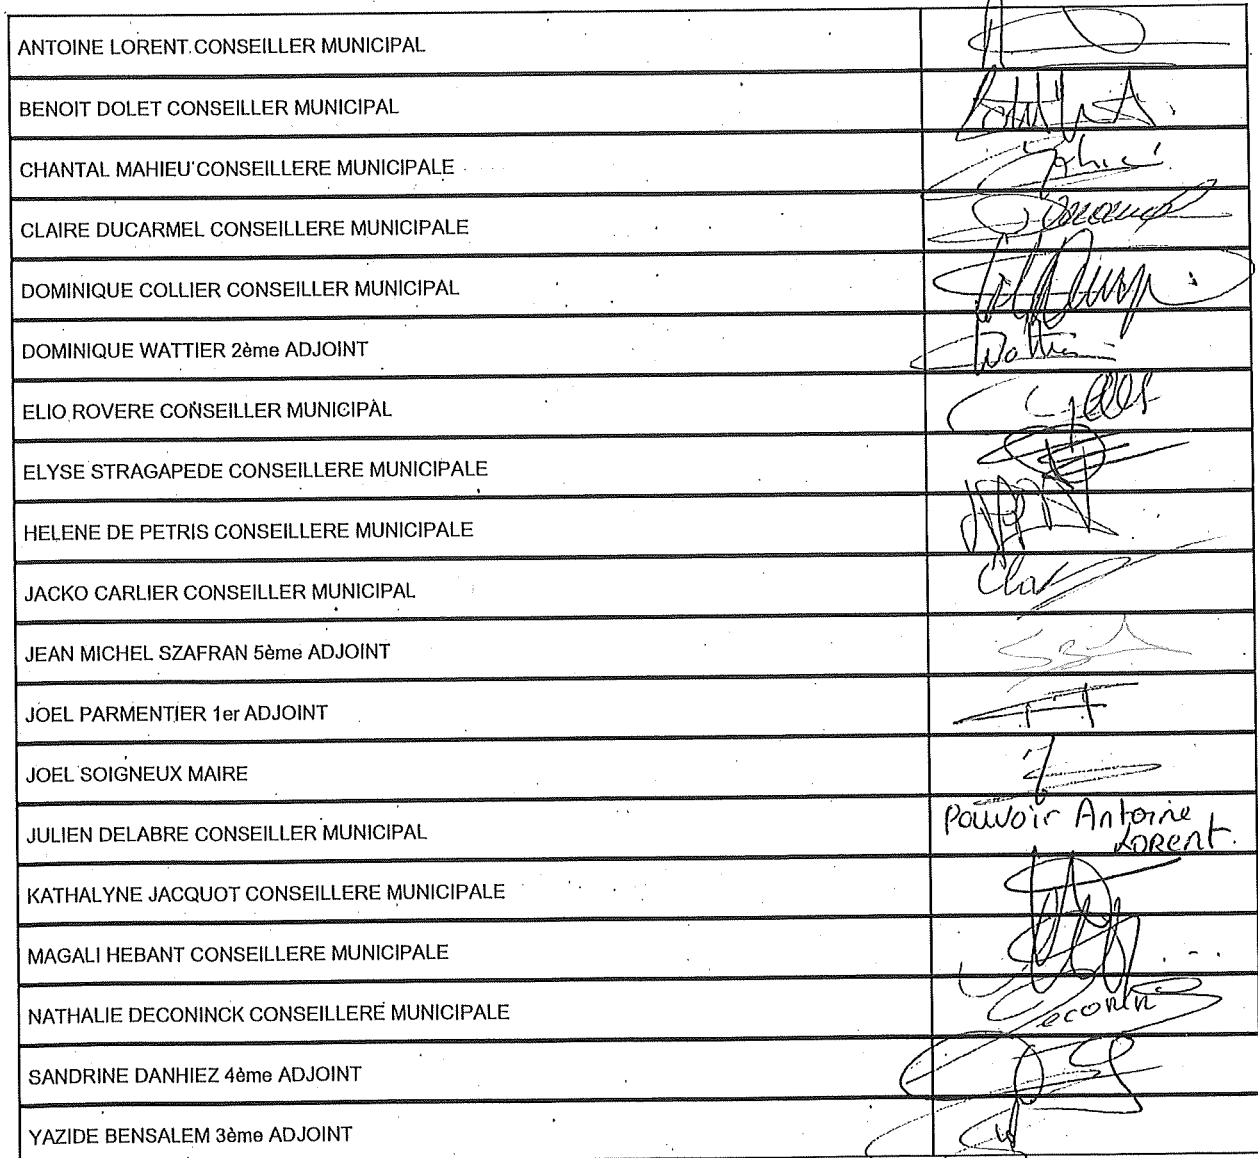 ANTOINE LORENT CONSEILLER MUNICIPAL
BENOIT DOLET CONSEILLER MUNICIPAL
CHANTAL MAHIEU CONSEILLERE MUNICIPALE
CLAIRE DUCARMEL CONSEILLERE MUNICIPALE
DOMINIQUE COLLIER CONSEILLER MUNICIPAL
DOMINIQUE WATTIER 2ème ADJOINT
ELIO ROVERE CONSEILLER MUNICIPAL
ELYSE STRAGAPEDE CONSEILLERE MUNICIPALE
HELENE DE PETRIS CONSEILLERE MUNICIPALE
JACKO CARLIER CONSEILLER MUNICIPAL
JEAN MICHEL SZAFRAN 5ème ADJOINT
JOEL PARMENTIER 1er ADJOINT
JOEL SOIGNEUX MAIRE
JULIEN DELABRE CONSEILLER MUNICIPAL
Pouvoir Antoine
LORENT.
KATHALYNE JACQUOT CONSEILLERE MUNICIPALE
MAGALI HEBANT CONSEILLERE MUNICIPALE
NATHALIE DECONINCK CONSEILLERE MUNICIPALE
SANDRINE DANHIEZ 4ème ADJOINT
YAZIDE BENSALEM 3ème ADJOINT